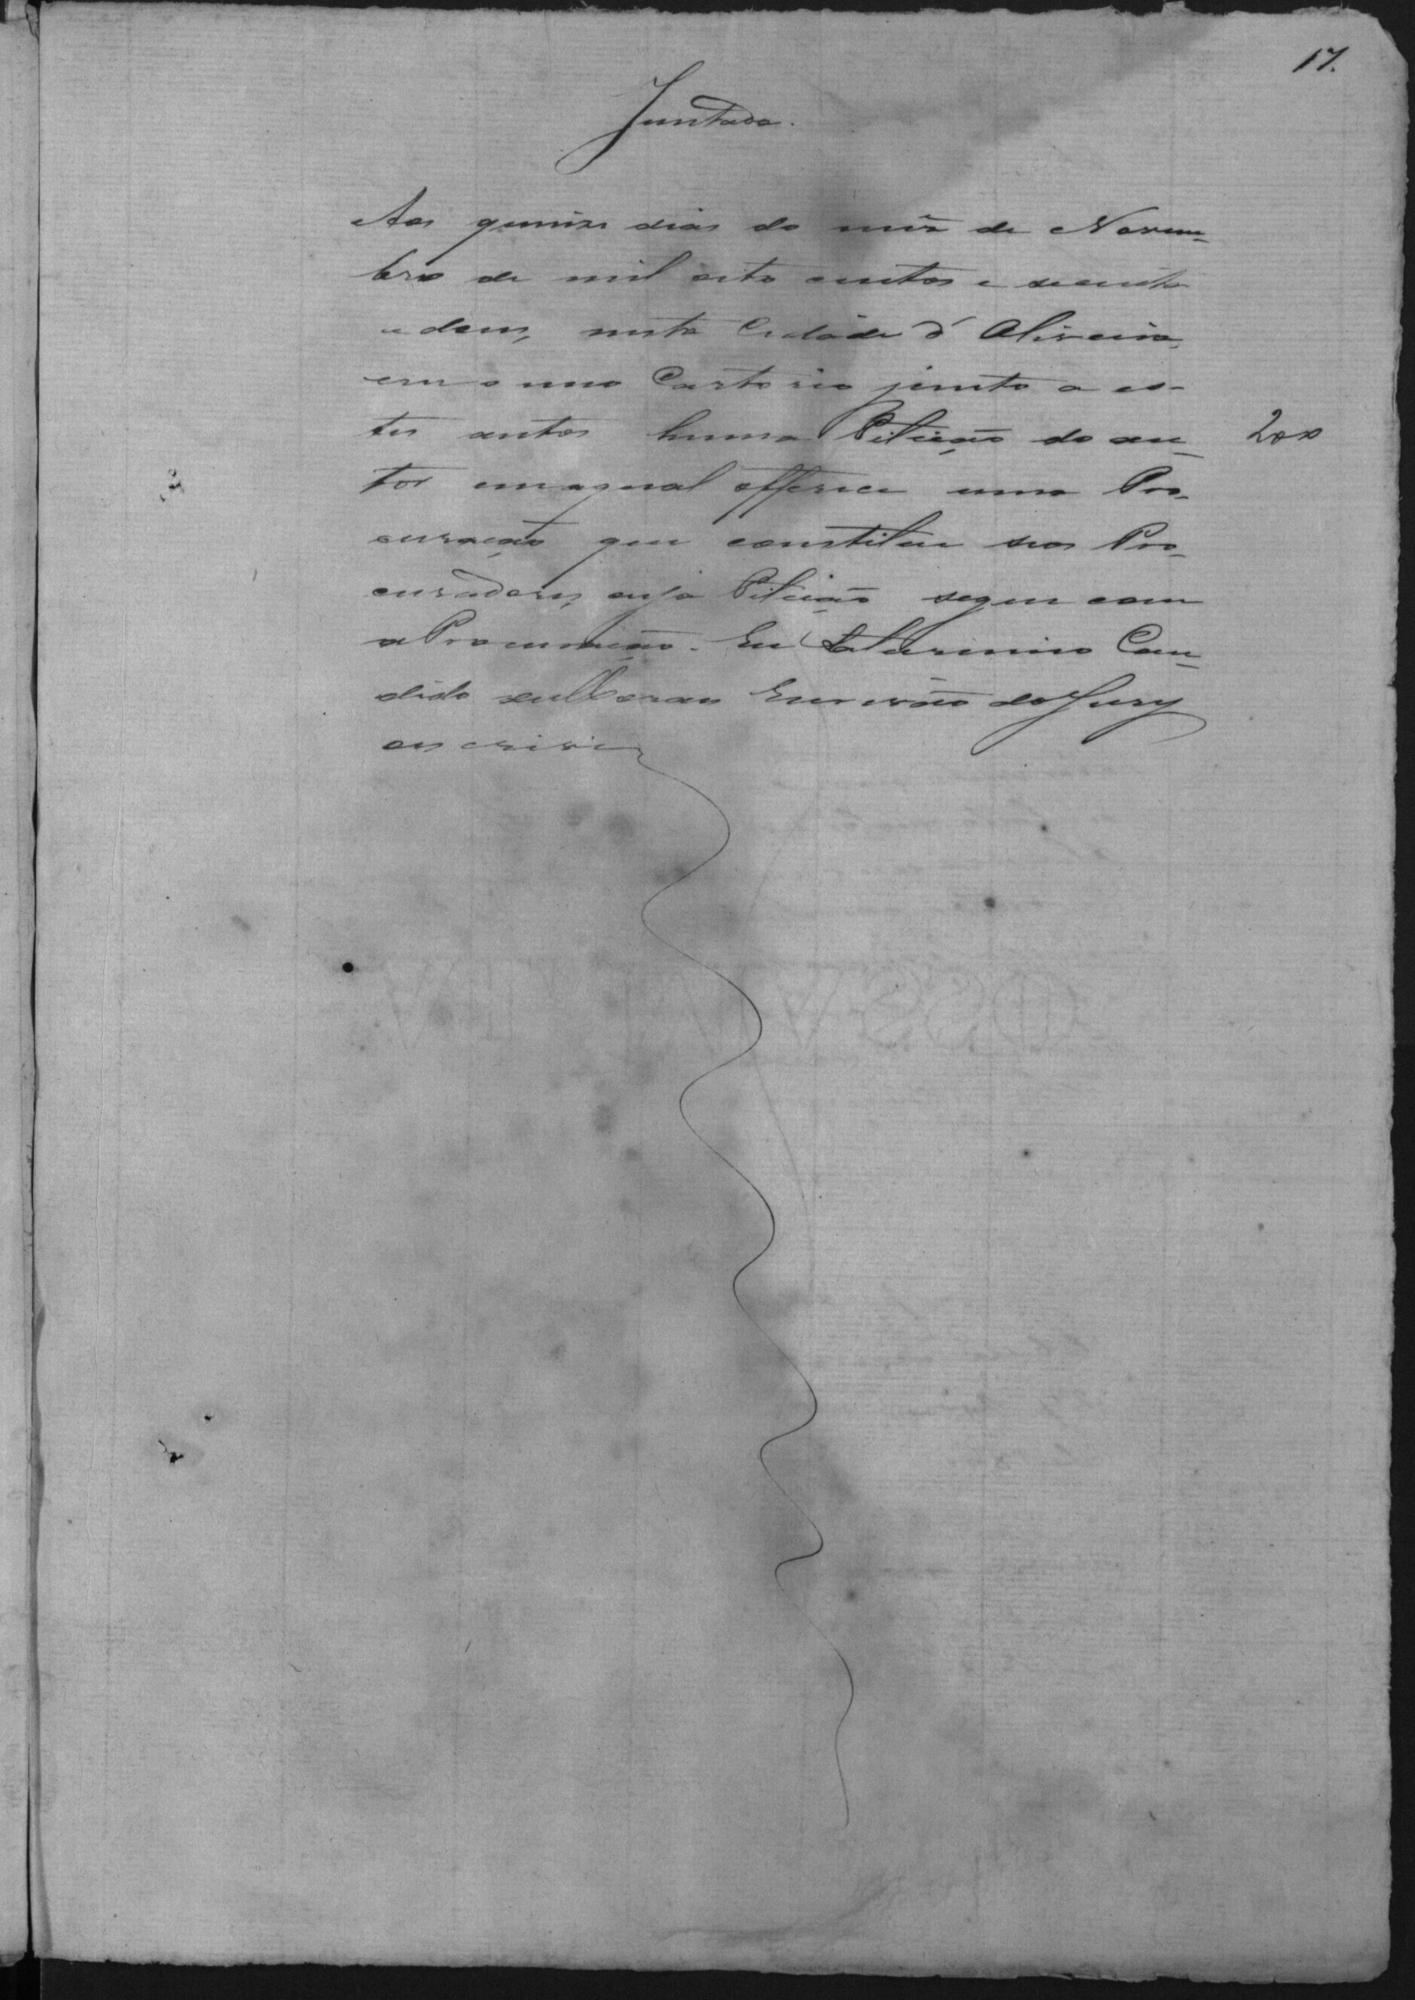 17.
Juntada.
Aos quinze dias do mez de Novem-
bro de mil oito centos e secenta
e dous, nesta Cidade d' Oliveira,
em o meu Cartorio junto a es-
tes autos huma Petição do au-
200
tor em a qual offerece uma Pro-
curação que constitue seos Pro-
curadores, cuja Petição segue com
a Procuração. Eu Saturnino Can-
dido Escrivão do Jury
escrivi